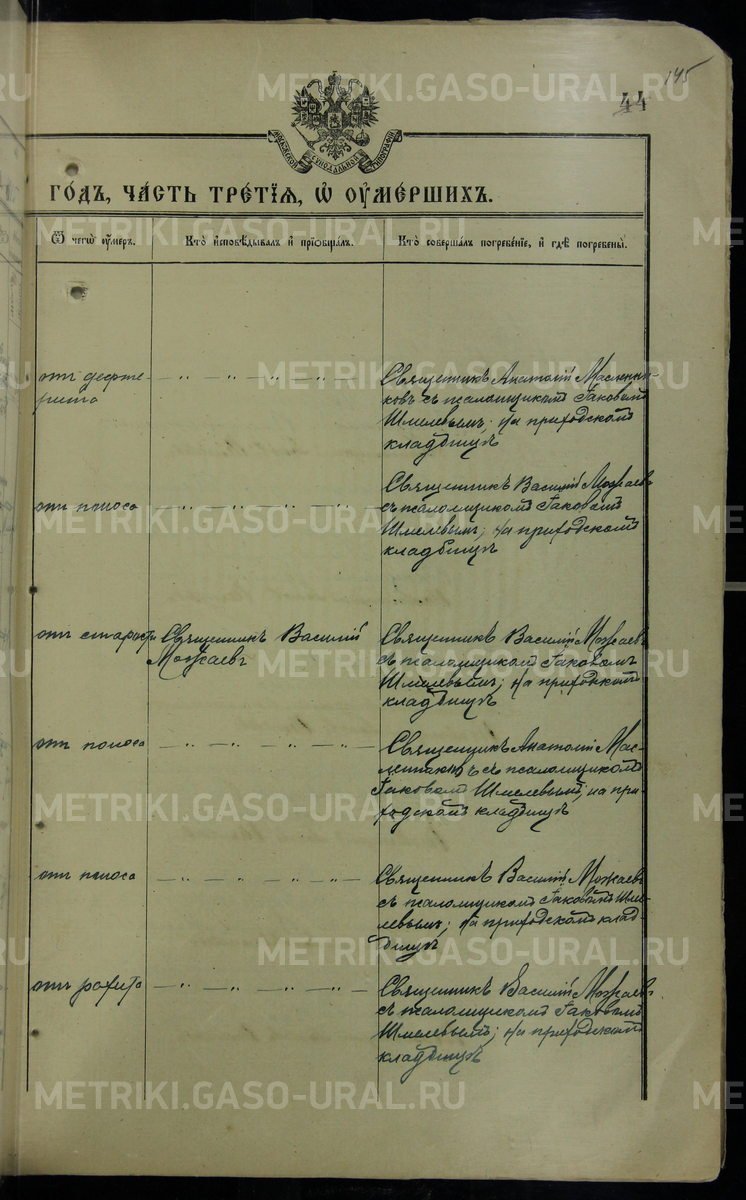 145
44
МОСКОВСКОЙ СѴНОДАЛЬНОЙ ТИПОГРАФІИ
ГО́ДЪ, ЧА́СТЬ ТРЕ́ТІѦ, Ѡ҆ ОУ҆МЕ́РШИХЪ.
Ѿ чегѡ̀ оу҆́меръ.
Кто̀ и҆сповѣ́дывалъ и҆ прїѡбща́лъ.
Кто̀ соверша́лъ погребе́нїе, и҆ гдѣ̀ погребены̀.
отъ дифте-
рита
— " — " — " — " —
Священникъ Анатолій Масленни-
ковъ съ псаломщикомъ Іаковомъ
Шмелевымъ; на приходскомъ
кладбищѣ
отъ поноса
— " — " — " — " —
Священникъ Василій Можаевъ
съ псаломщикомъ Іаковомъ
Шмелевымъ; на приходскомъ
кладбищѣ
отъ старости
Священникъ Василій
Можаевъ
Священникъ Василій Можаевъ
съ псаломщикомъ Іаковомъ
Шмелевымъ; на приходскомъ
кладбищѣ
отъ поноса
— " — " — " — " —
Священникъ Анатолій Мас-
ленниковъ съ псаломщикомъ
Іаковомъ Шмелевымъ; на при-
ходскомъ кладбищѣ
отъ поноса
— " — " — " — " —
Священникъ Василій Можаевъ
съ псаломщикомъ Іаковомъ Шме-
левымъ; на приходскомъ клад-
бищѣ
отъ рахита
— " — " — " — " —
Священникъ Василій Можаевъ
съ псаломщикомъ Іаковомъ
Шмелевымъ; на приходскомъ
кладбищѣ
METRIKI.GASO-URAL.RU